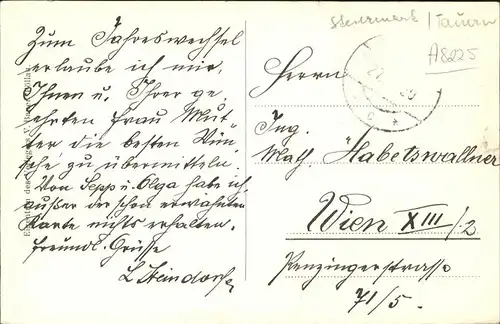 Steiermark / Tauern
A8225
Zum Jahreswechsel
erlaube ich mir,
Ihnen u. Ihrer ge-
ehrten Frau Mut-
ter die besten Wün-
sche zu übermitteln.
Von Sepp u. Olga habe ich
außer der schon erwähnten
Karte nichts erhalten.
Freundl. Grüsse
Herrn
Ing.
Math. Habetswallner
Wien XIII/2
Penzingerstrasse
71/5.